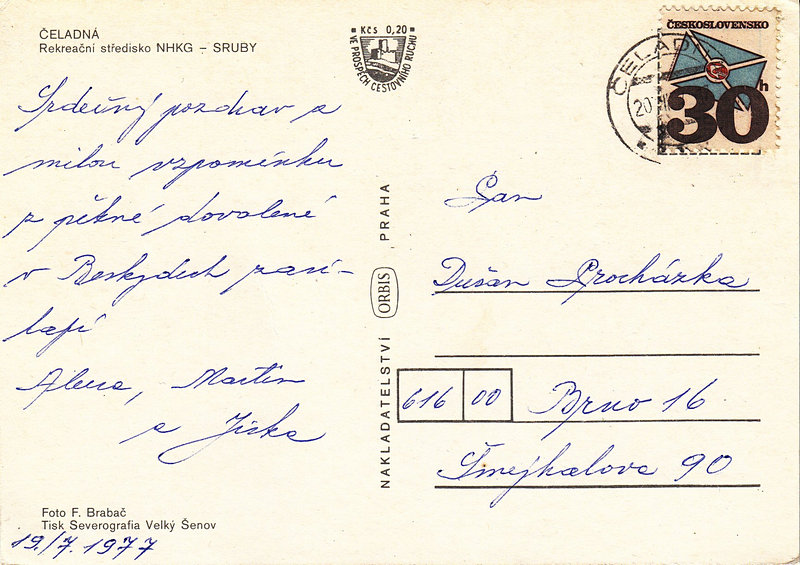 ČELADNÁ
Rekreační středisko NHKG – SRUBY
Srdečný pozdrav a
milou vzpomínku
z pěkné dovolené
v Beskydech zasí-
lají
Alena, Martin
a Jirka
Foto F. Brabač
Tisk Severografia Velký Šenov
19./7. 1977
Kčs 0,20
VE PROSPĚCH CESTOVNÍHO RUCHU
NAKLADATELSTVÍ ORBIS PRAHA
ČESKOSLOVENSKO
30 h
ČELAD
20
Pan
Dušan Procházka
616 00 Brno 16
Šmejkalova 90